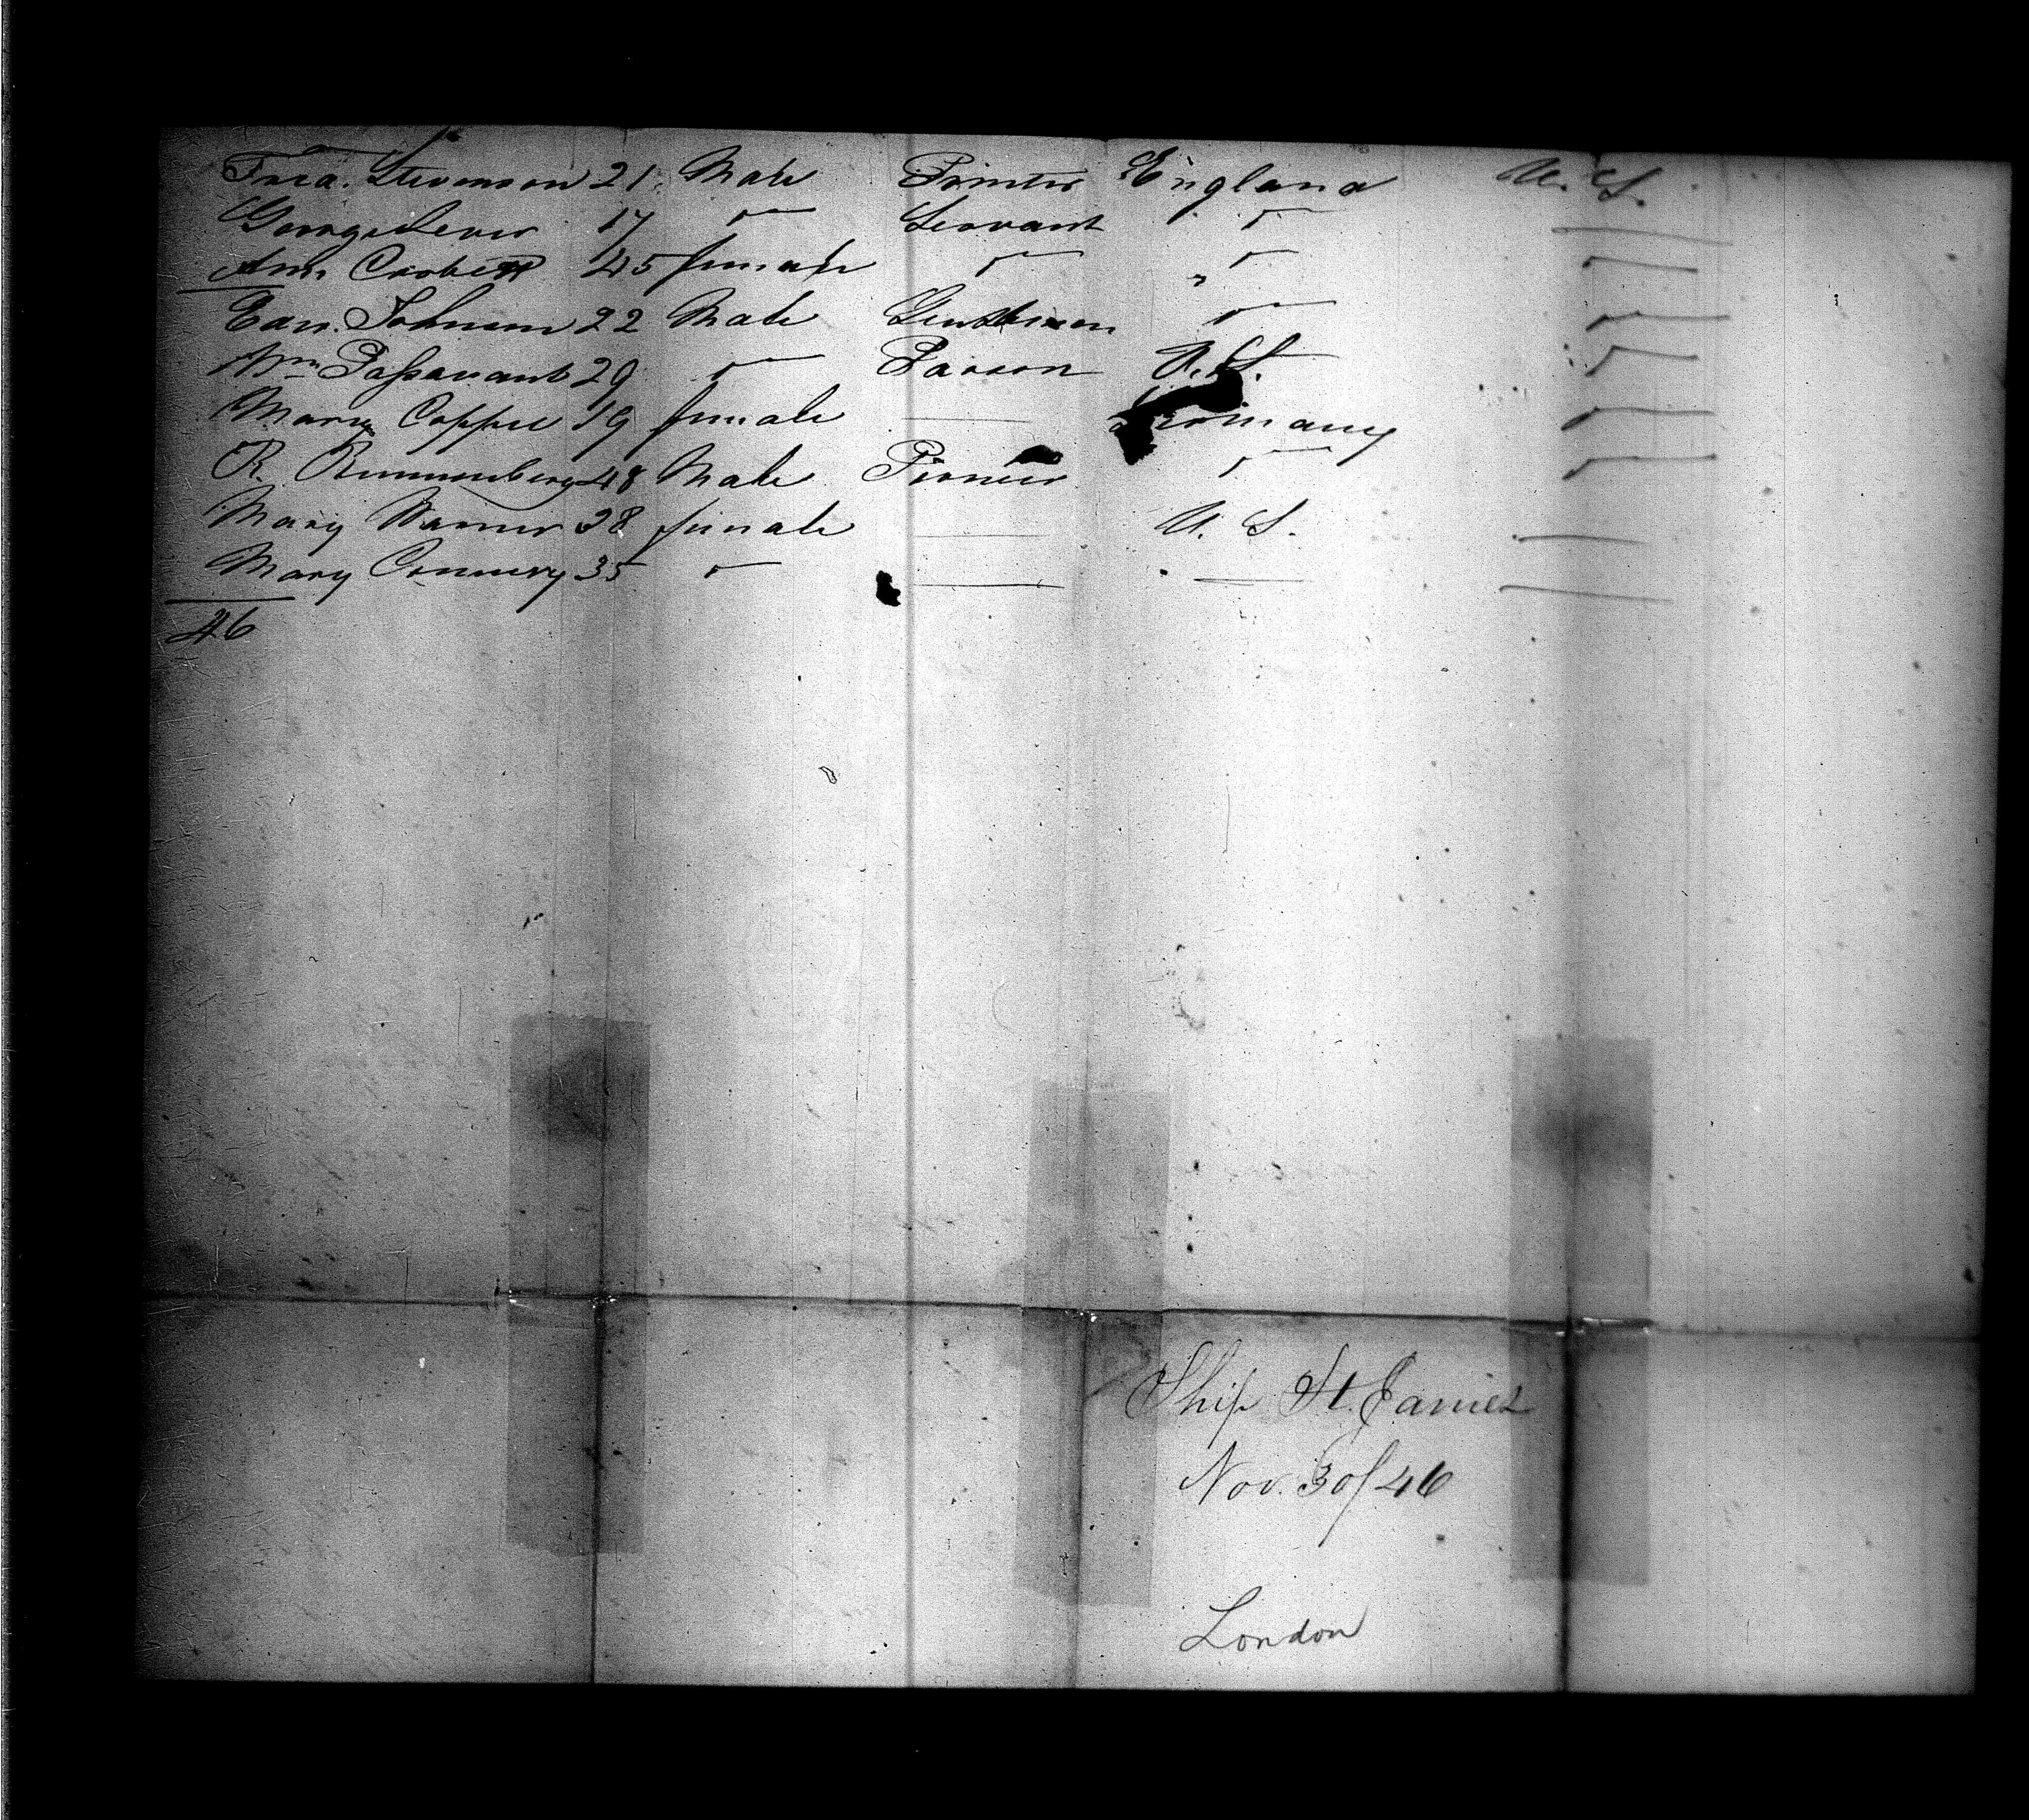 Fred. Stevenson 21 Male Painter England U. S.
George Lever 17 " Servant "
Ann Corbett 45 female " "
Edw. Johnson 22 Male Gentleman "
Wm Passavant 29 " Parson U. S. "
Mary Coppee 19 female Germany "
R. Rummenberg 48 Male " "
Mary Warner 28 female U. S.
Mary Connery 35 "
46
Ship St. James
Nov. 30/46
London